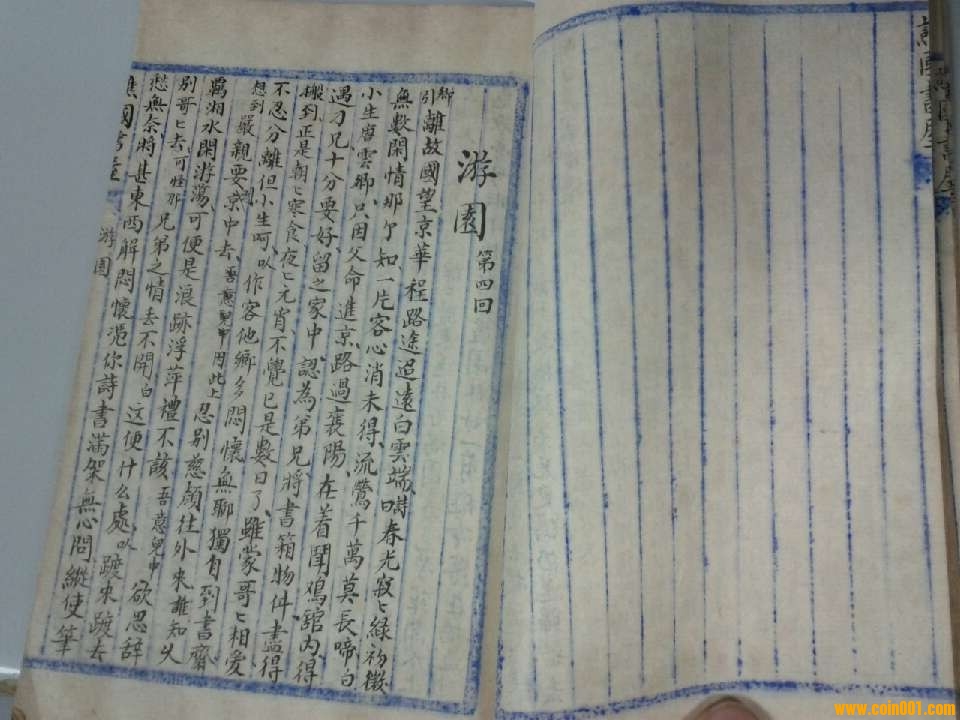 游園
第四回
引 離故國望京華程路途迢遠白雲端 詩曰 春光寂〻綠初微
無數閑情那个知、一片客心消未得、流鶯千萬莫長啼、白
小生唐雲卿、只因父命進京、路過襄陽、在着聞鴻舘內、得
遇刁兄十分要好、留之家中、認為弟兄、將書箱物件、盡得
搬到、正是朝〻寒食、夜〻元宵、不覺已是數日了、雖蒙哥〻相愛
不忍分離、但小生呵、以作客他鄉多悶懷無聊獨自到書齋
想到嚴親要 京中去、吾意兒中 因此上忍別慈顏往外來誰知火
湘水閑游蕩、可便是浪跡浮萍禮不該 吾意兒中 欲思辞
別哥〻去、可怪那兄弟之情去不開 白 這便什么處、以 踱來踱去
愁無奈、將甚東西解悶懷、凭你詩書滿架無心問、縱使筆
游園
www.coin001.com